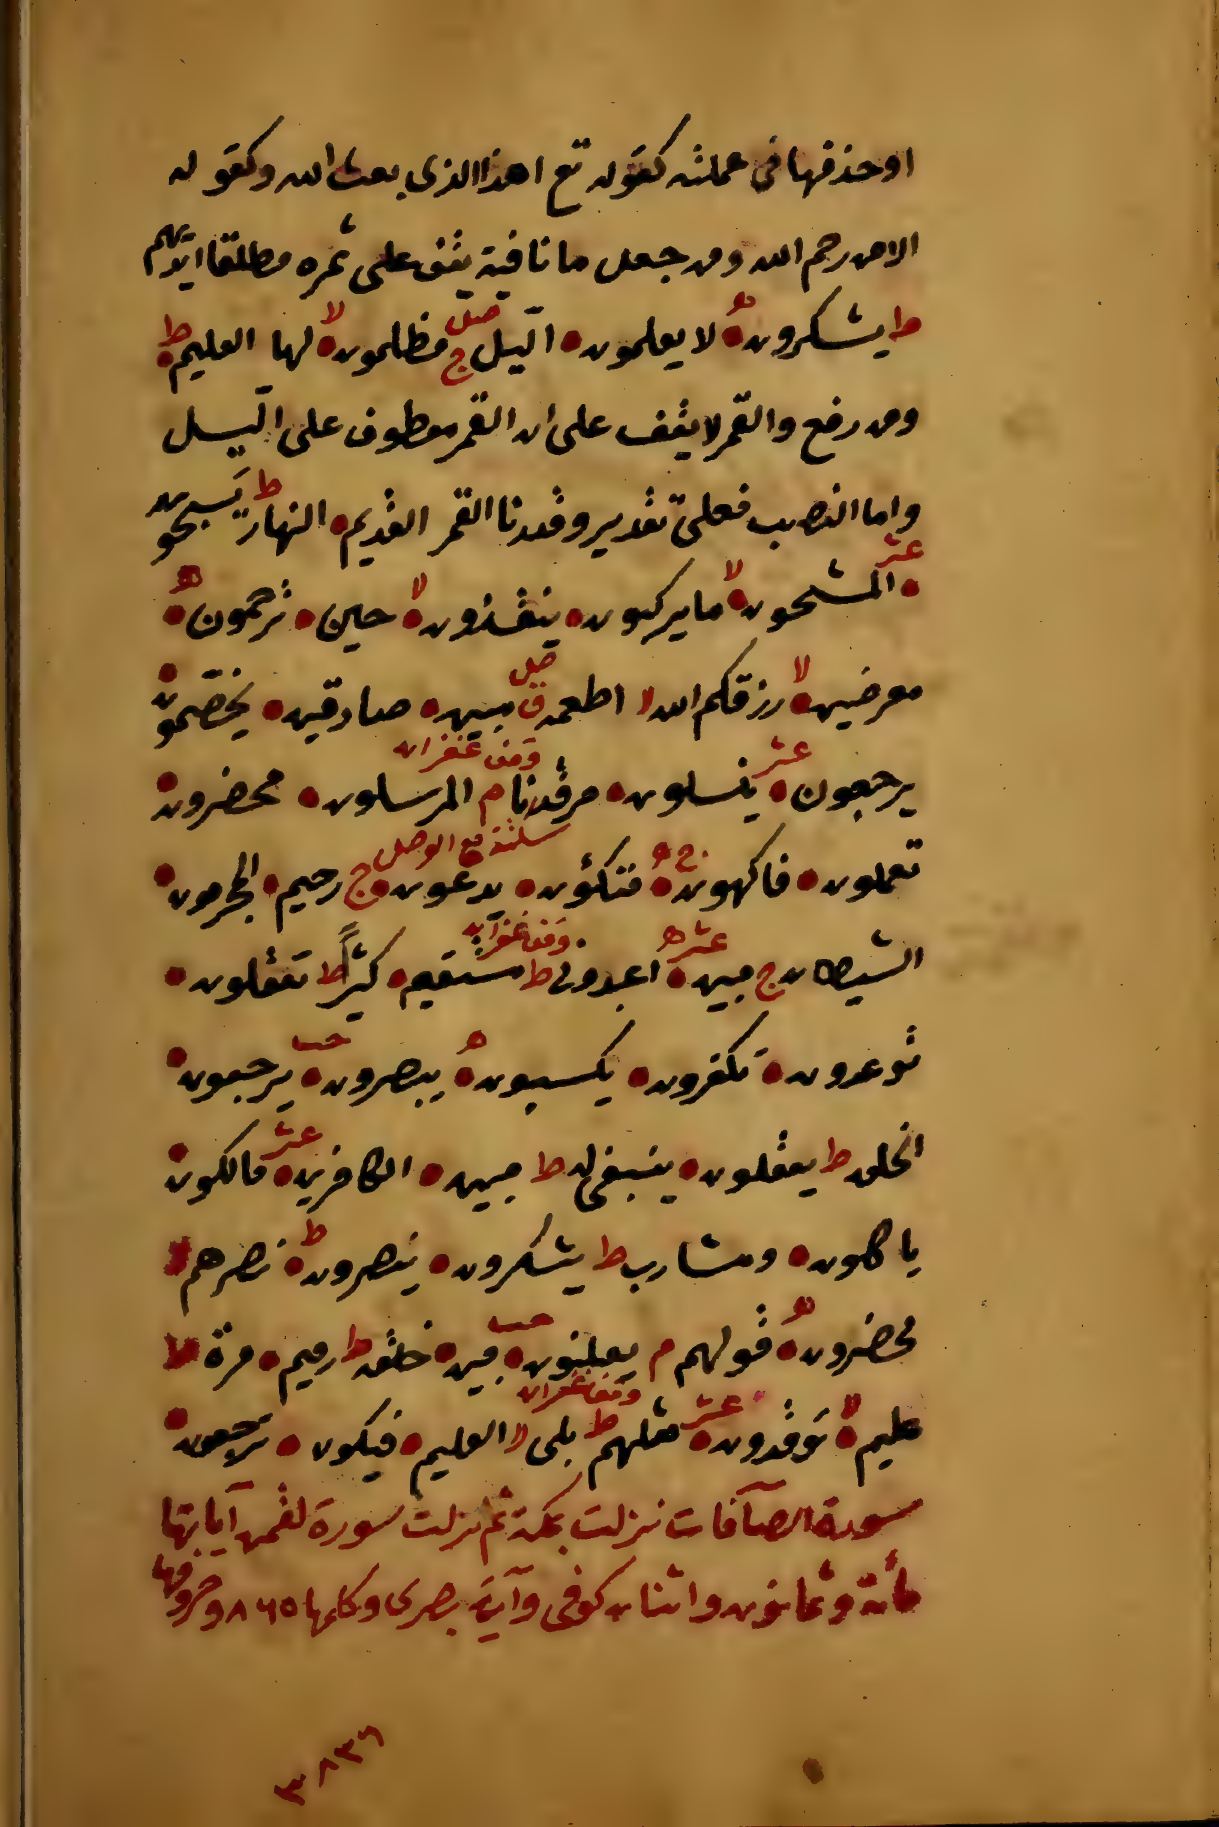 او حذفها فى عملته كقوله تع اهذا الذى بعث الله وكقوله
الا من رحم الله ومن جعل ما نافية يقف على ثمره مطلقا ايديهم
ط يشكرون ه لا يعلمون الّيل صل ج مظلمون لا لها العليم ط
ومن رفع والقمر لا يقف على ان القمر معطوف على الّيل
واما النصب فعلى تقدير وقدرنا القمر القديم النهار ط يَسبحون
عشر المشحون لا ما يركبون ينقذون لا حين ترحمون ه
معرضين لا رزقكم الله لا اطعمه ق صل مبين صادقين يخصّمون
يرجعون عشر ينسلون مرقدنا م وقف غفران المرسلون محضرون
تعملون فاكهون ج ه متكؤن يدعون ج سكتة مع الوصل رحيم المجرمون
الشيطان ج مبين عشر ه اعبدونى ط وقف غفران مستقيم كثيراً ط تعقلون
توعدون تكفرون يكسبون ه يبصرون حسب يرجعون
الخلق ط يعقلون ينبغى له ط مبين الكافرين عشر مالكون
ياكلون ومشارب ط يشكرون ينصرون ط نصرهم لا
محضرون ه قولهم م يعلنون حسب مبين خلقه ط رميم مرة ط
عليم لا توقدون عشر مثلهم ط وقف غفران بلى لا العليم فيكون ترجعون
سورة الصآفات نزلت بمكة ثم نزلت سورة لقمن آياتها
مأئة وثمانون واثنان كوفى وآية بصرى وكلمها ٨٦٥ وحروفها
٣٨٣٦